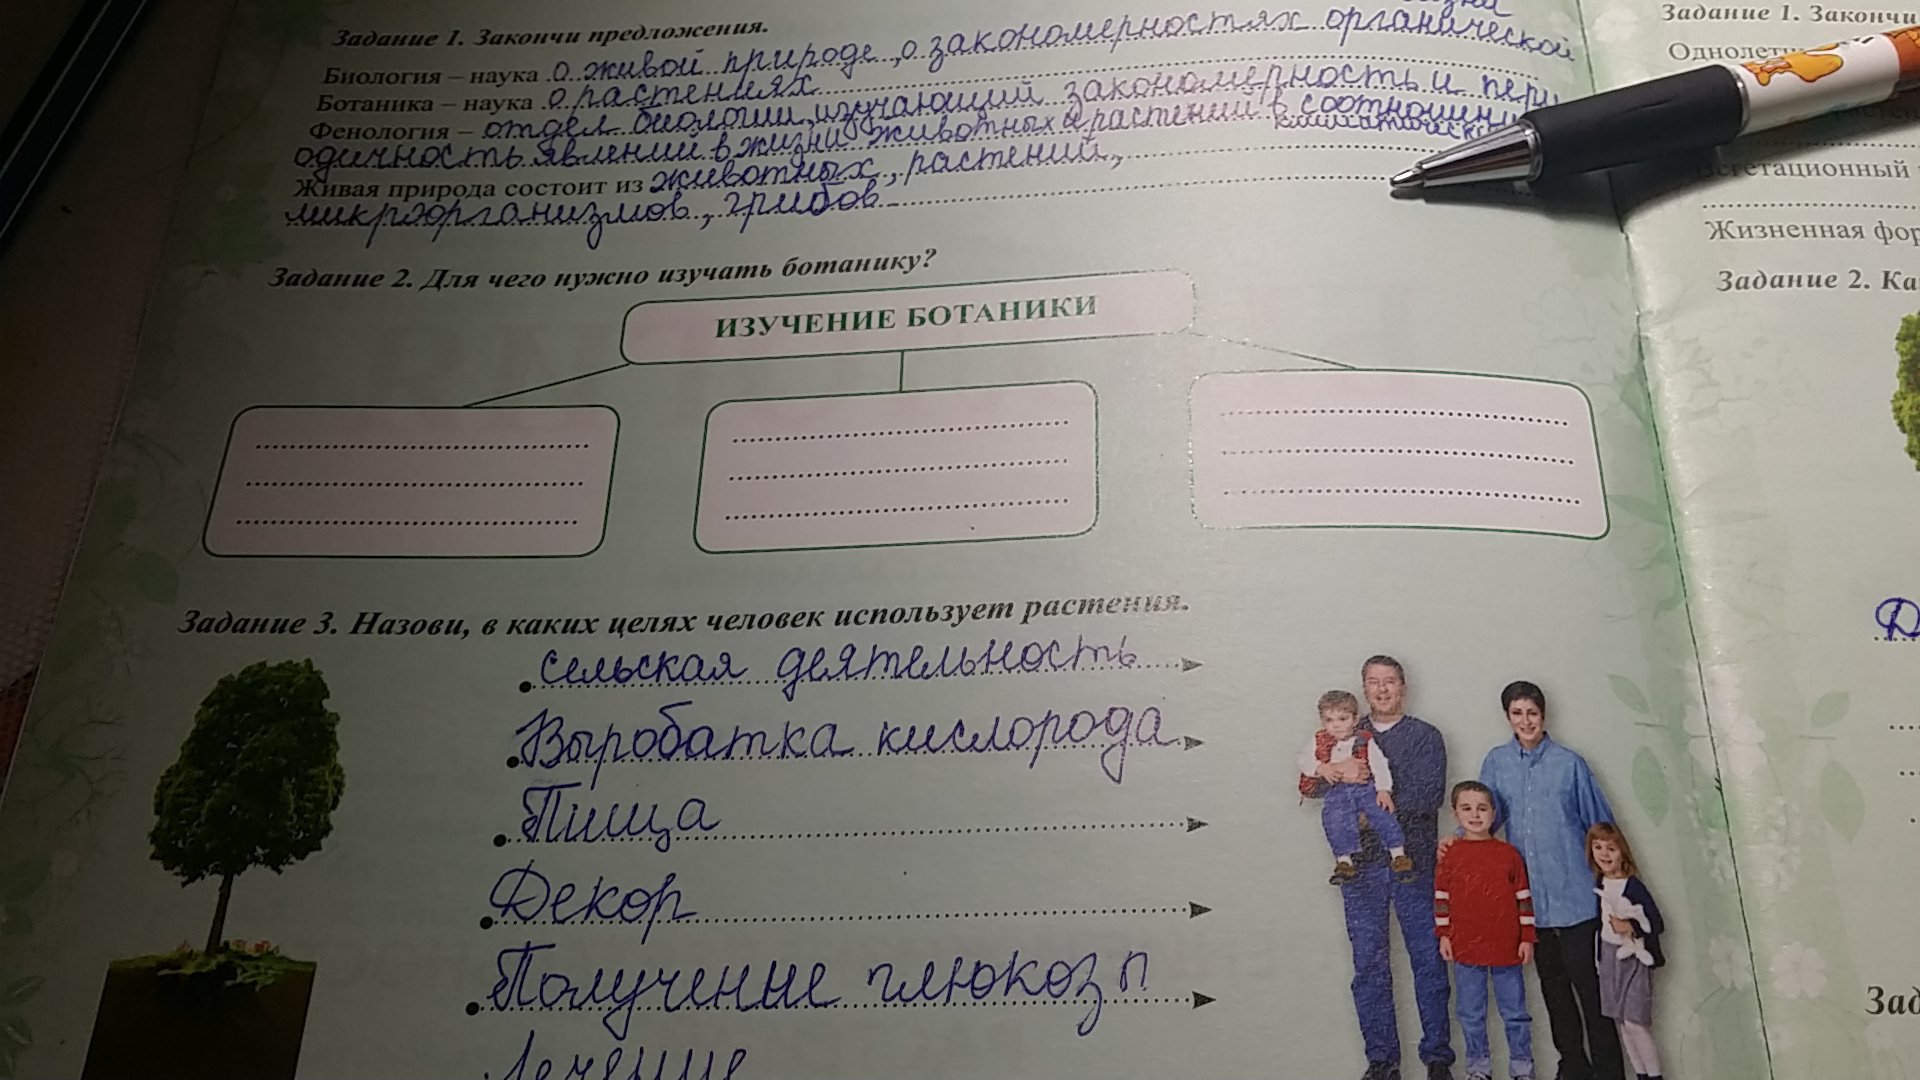 Задание 1. Закончи предложения.
Биология – наука о живой природе, о закономерностях органической
Ботаника – наука о растениях
Фенология – отдел биологии, изучающий закономерность и пери
одичность явлений в жизни животных и растений в соотношении
Живая природа состоит из животных, растений,
микроорганизмов, грибов
Задание 2. Для чего нужно изучать ботанику?
ИЗУЧЕНИЕ БОТАНИКИ
Задание 3. Назови, в каких целях человек использует растения.
сельская деятельность
Выработка кислорода
Пища
Декор
Получение глюкозы
Лечение
Задание 1. Закончи
Однолетн
Вегетационный
Жизненная фор
Задание 2. Ка
Д
Зад